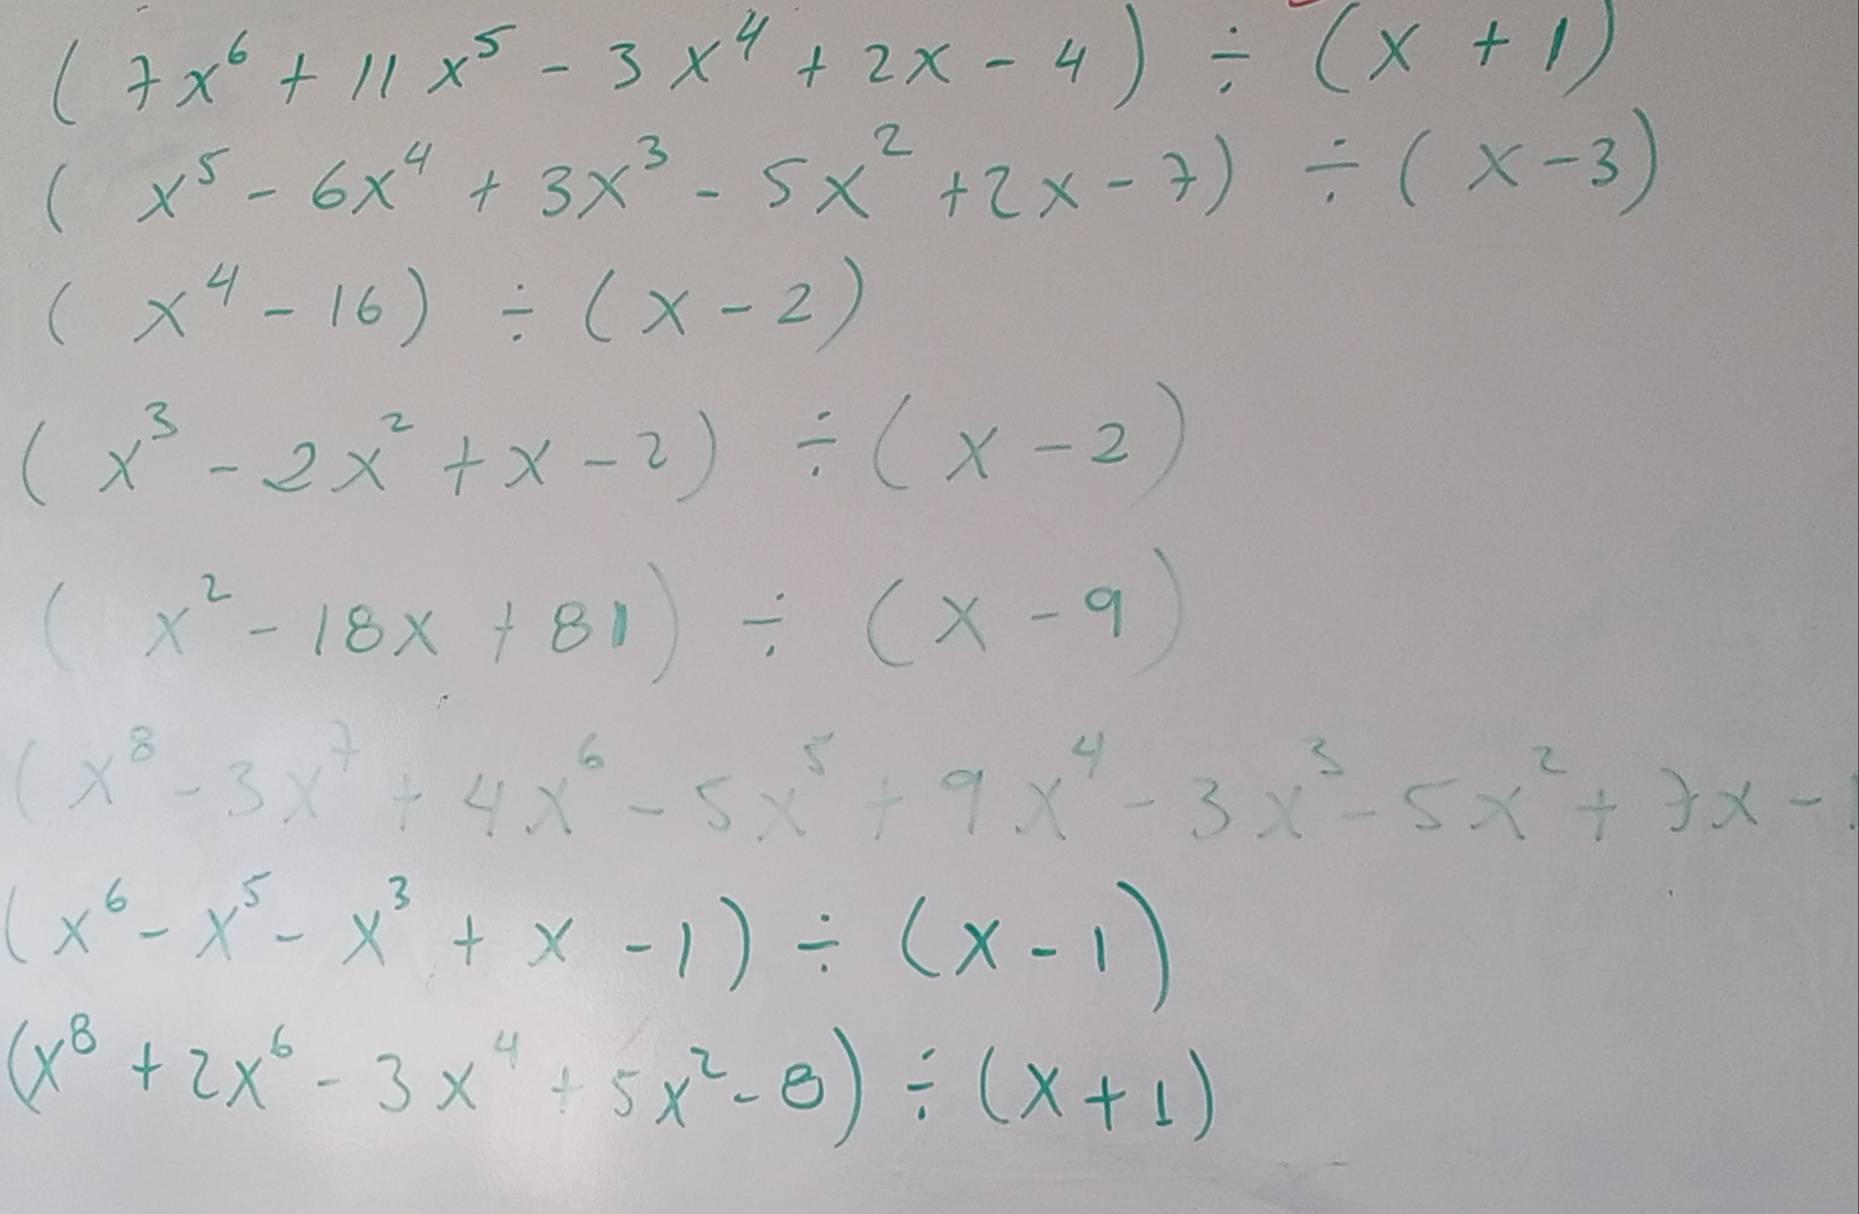 (7x⁶ + 11x⁵ - 3x⁴ + 2x - 4) ÷ (x + 1)
(x⁵ - 6x⁴ + 3x³ - 5x² + 2x - 7) ÷ (x - 3)
(x⁴ - 16) ÷ (x - 2)
(x³ - 2x² + x - 2) ÷ (x - 2)
(x² - 18x + 81) ÷ (x - 9)
(x⁸ - 3x⁷ + 4x⁶ - 5x⁵ + 9x⁴ - 3x³ - 5x² + 7x -
(x⁶ - x⁵ - x³ + x - 1) ÷ (x - 1)
(x⁸ + 2x⁶ - 3x⁴ + 5x² - 8) ÷ (x + 1)